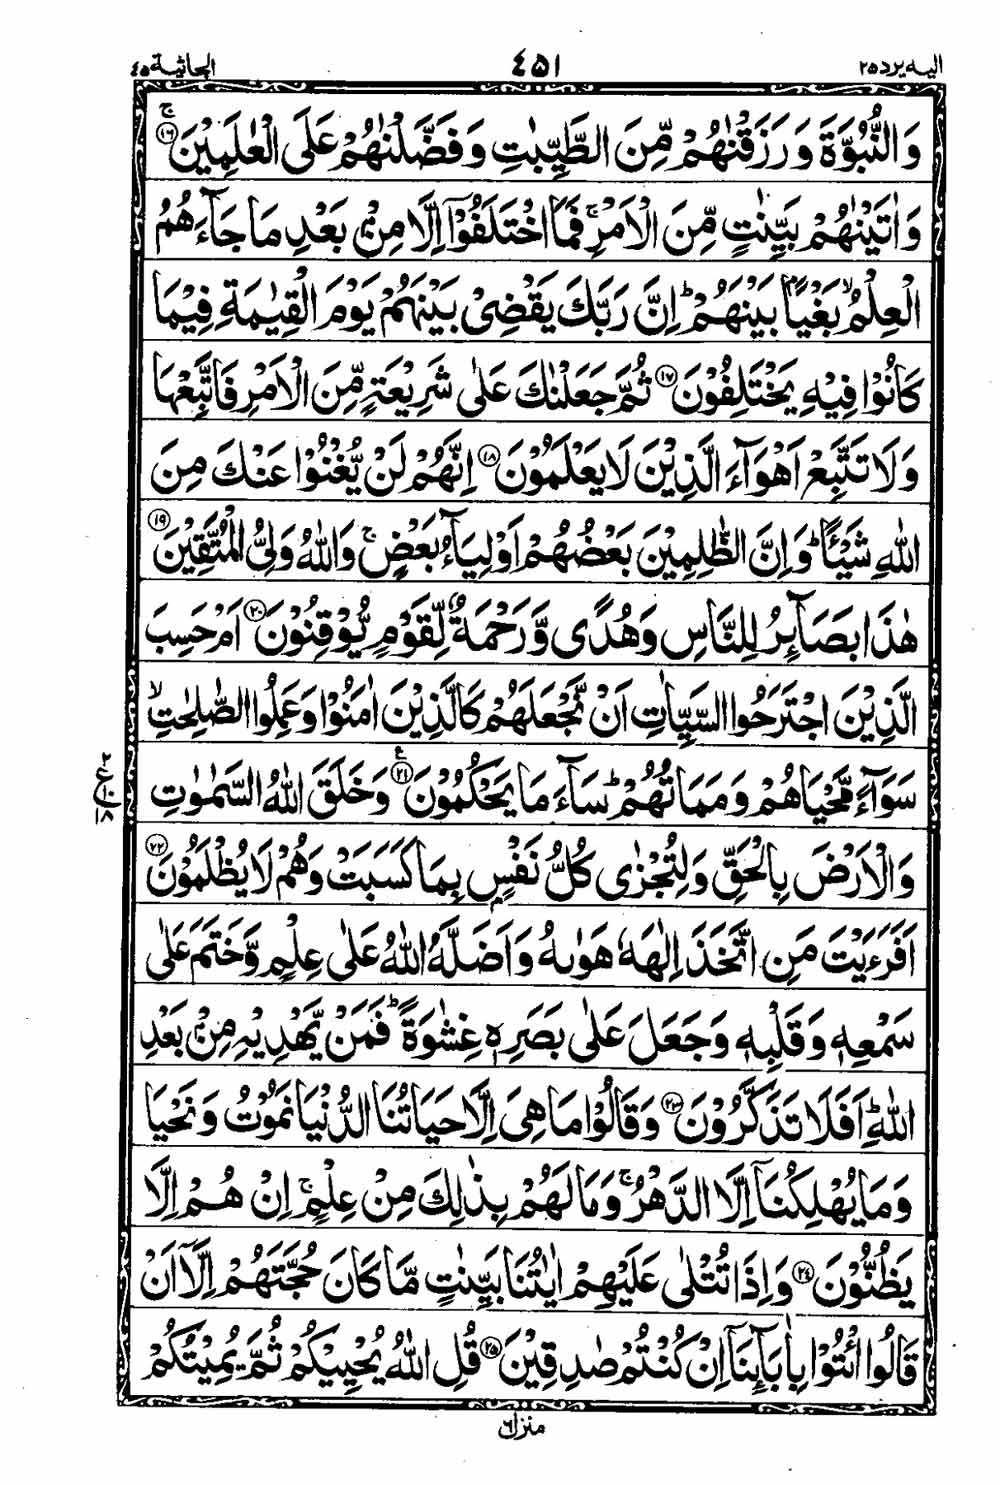 الیه یرد ۲۵
۴۵۱
الجاثیة ۴۵
وَالنُّبُوَّةَ وَرَزَقْنٰهُمْ مِّنَ الطَّیِّبٰتِ وَفَضَّلْنٰهُمْ عَلَی الْعٰلَمِیْنَ ۚ﴿۱۶﴾
وَاٰتَیْنٰهُمْ بَیِّنٰتٍ مِّنَ الْاَمْرِ ۚ فَمَا اخْتَلَفُوْۤا اِلَّا مِنْۢ بَعْدِ مَا جَآءَهُمُ
الْعِلْمُ ۙ بَغْیًۢا بَیْنَهُمْ ؕ اِنَّ رَبَّكَ یَقْضِیْ بَیْنَهُمْ یَوْمَ الْقِیٰمَةِ فِیْمَا
كَانُوْا فِیْهِ یَخْتَلِفُوْنَ ﴿۱۷﴾ ثُمَّ جَعَلْنٰكَ عَلٰی شَرِیْعَةٍ مِّنَ الْاَمْرِ فَاتَّبِعْهَا
وَلَا تَتَّبِعْ اَهْوَآءَ الَّذِیْنَ لَا یَعْلَمُوْنَ ﴿۱۸﴾ اِنَّهُمْ لَنْ یُّغْنُوْا عَنْكَ مِنَ
اللّٰهِ شَیْـًٔا ؕ وَاِنَّ الظّٰلِمِیْنَ بَعْضُهُمْ اَوْلِیَآءُ بَعْضٍ ۚ وَاللّٰهُ وَلِیُّ الْمُتَّقِیْنَ ﴿۱۹﴾
هٰذَا بَصَآىِٕرُ لِلنَّاسِ وَهُدًی وَّرَحْمَةٌ لِّقَوْمٍ یُّوْقِنُوْنَ ﴿۲۰﴾ اَمْ حَسِبَ
الَّذِیْنَ اجْتَرَحُوا السَّیِّاٰتِ اَنْ نَّجْعَلَهُمْ كَالَّذِیْنَ اٰمَنُوْا وَعَمِلُوا الصّٰلِحٰتِ ۙ
سَوَآءً مَّحْیَاهُمْ وَمَمَاتُهُمْ ؕ سَآءَ مَا یَحْكُمُوْنَ ﴿۲۱﴾ۧ وَخَلَقَ اللّٰهُ السَّمٰوٰتِ
وَالْاَرْضَ بِالْحَقِّ وَلِتُجْزٰی كُلُّ نَفْسٍۭ بِمَا كَسَبَتْ وَهُمْ لَا یُظْلَمُوْنَ ﴿۲۲﴾
اَفَرَءَیْتَ مَنِ اتَّخَذَ اِلٰهَهٗ هَوٰىهُ وَاَضَلَّهُ اللّٰهُ عَلٰی عِلْمٍ وَّخَتَمَ عَلٰی
سَمْعِهٖ وَقَلْبِهٖ وَجَعَلَ عَلٰی بَصَرِهٖ غِشٰوَةً ؕ فَمَنْ یَّهْدِیْهِ مِنْۢ بَعْدِ
اللّٰهِ ؕ اَفَلَا تَذَكَّرُوْنَ ﴿۲۳﴾ وَقَالُوْا مَا هِیَ اِلَّا حَیَاتُنَا الدُّنْیَا نَمُوْتُ وَنَحْیَا
وَمَا یُهْلِكُنَاۤ اِلَّا الدَّهْرُ ۚ وَمَا لَهُمْ بِذٰلِكَ مِنْ عِلْمٍ ۚ اِنْ هُمْ اِلَّا
یَظُنُّوْنَ ﴿۲۴﴾ وَاِذَا تُتْلٰی عَلَیْهِمْ اٰیٰتُنَا بَیِّنٰتٍ مَّا كَانَ حُجَّتَهُمْ اِلَّاۤ اَنْ
قَالُوا ائْتُوْا بِاٰبَآىِٕنَاۤ اِنْ كُنْتُمْ صٰدِقِیْنَ ﴿۲۵﴾ قُلِ اللّٰهُ یُحْیِیْكُمْ ثُمَّ یُمِیْتُكُمْ
۲
ع ۱۰
۱۸
منزل ۶